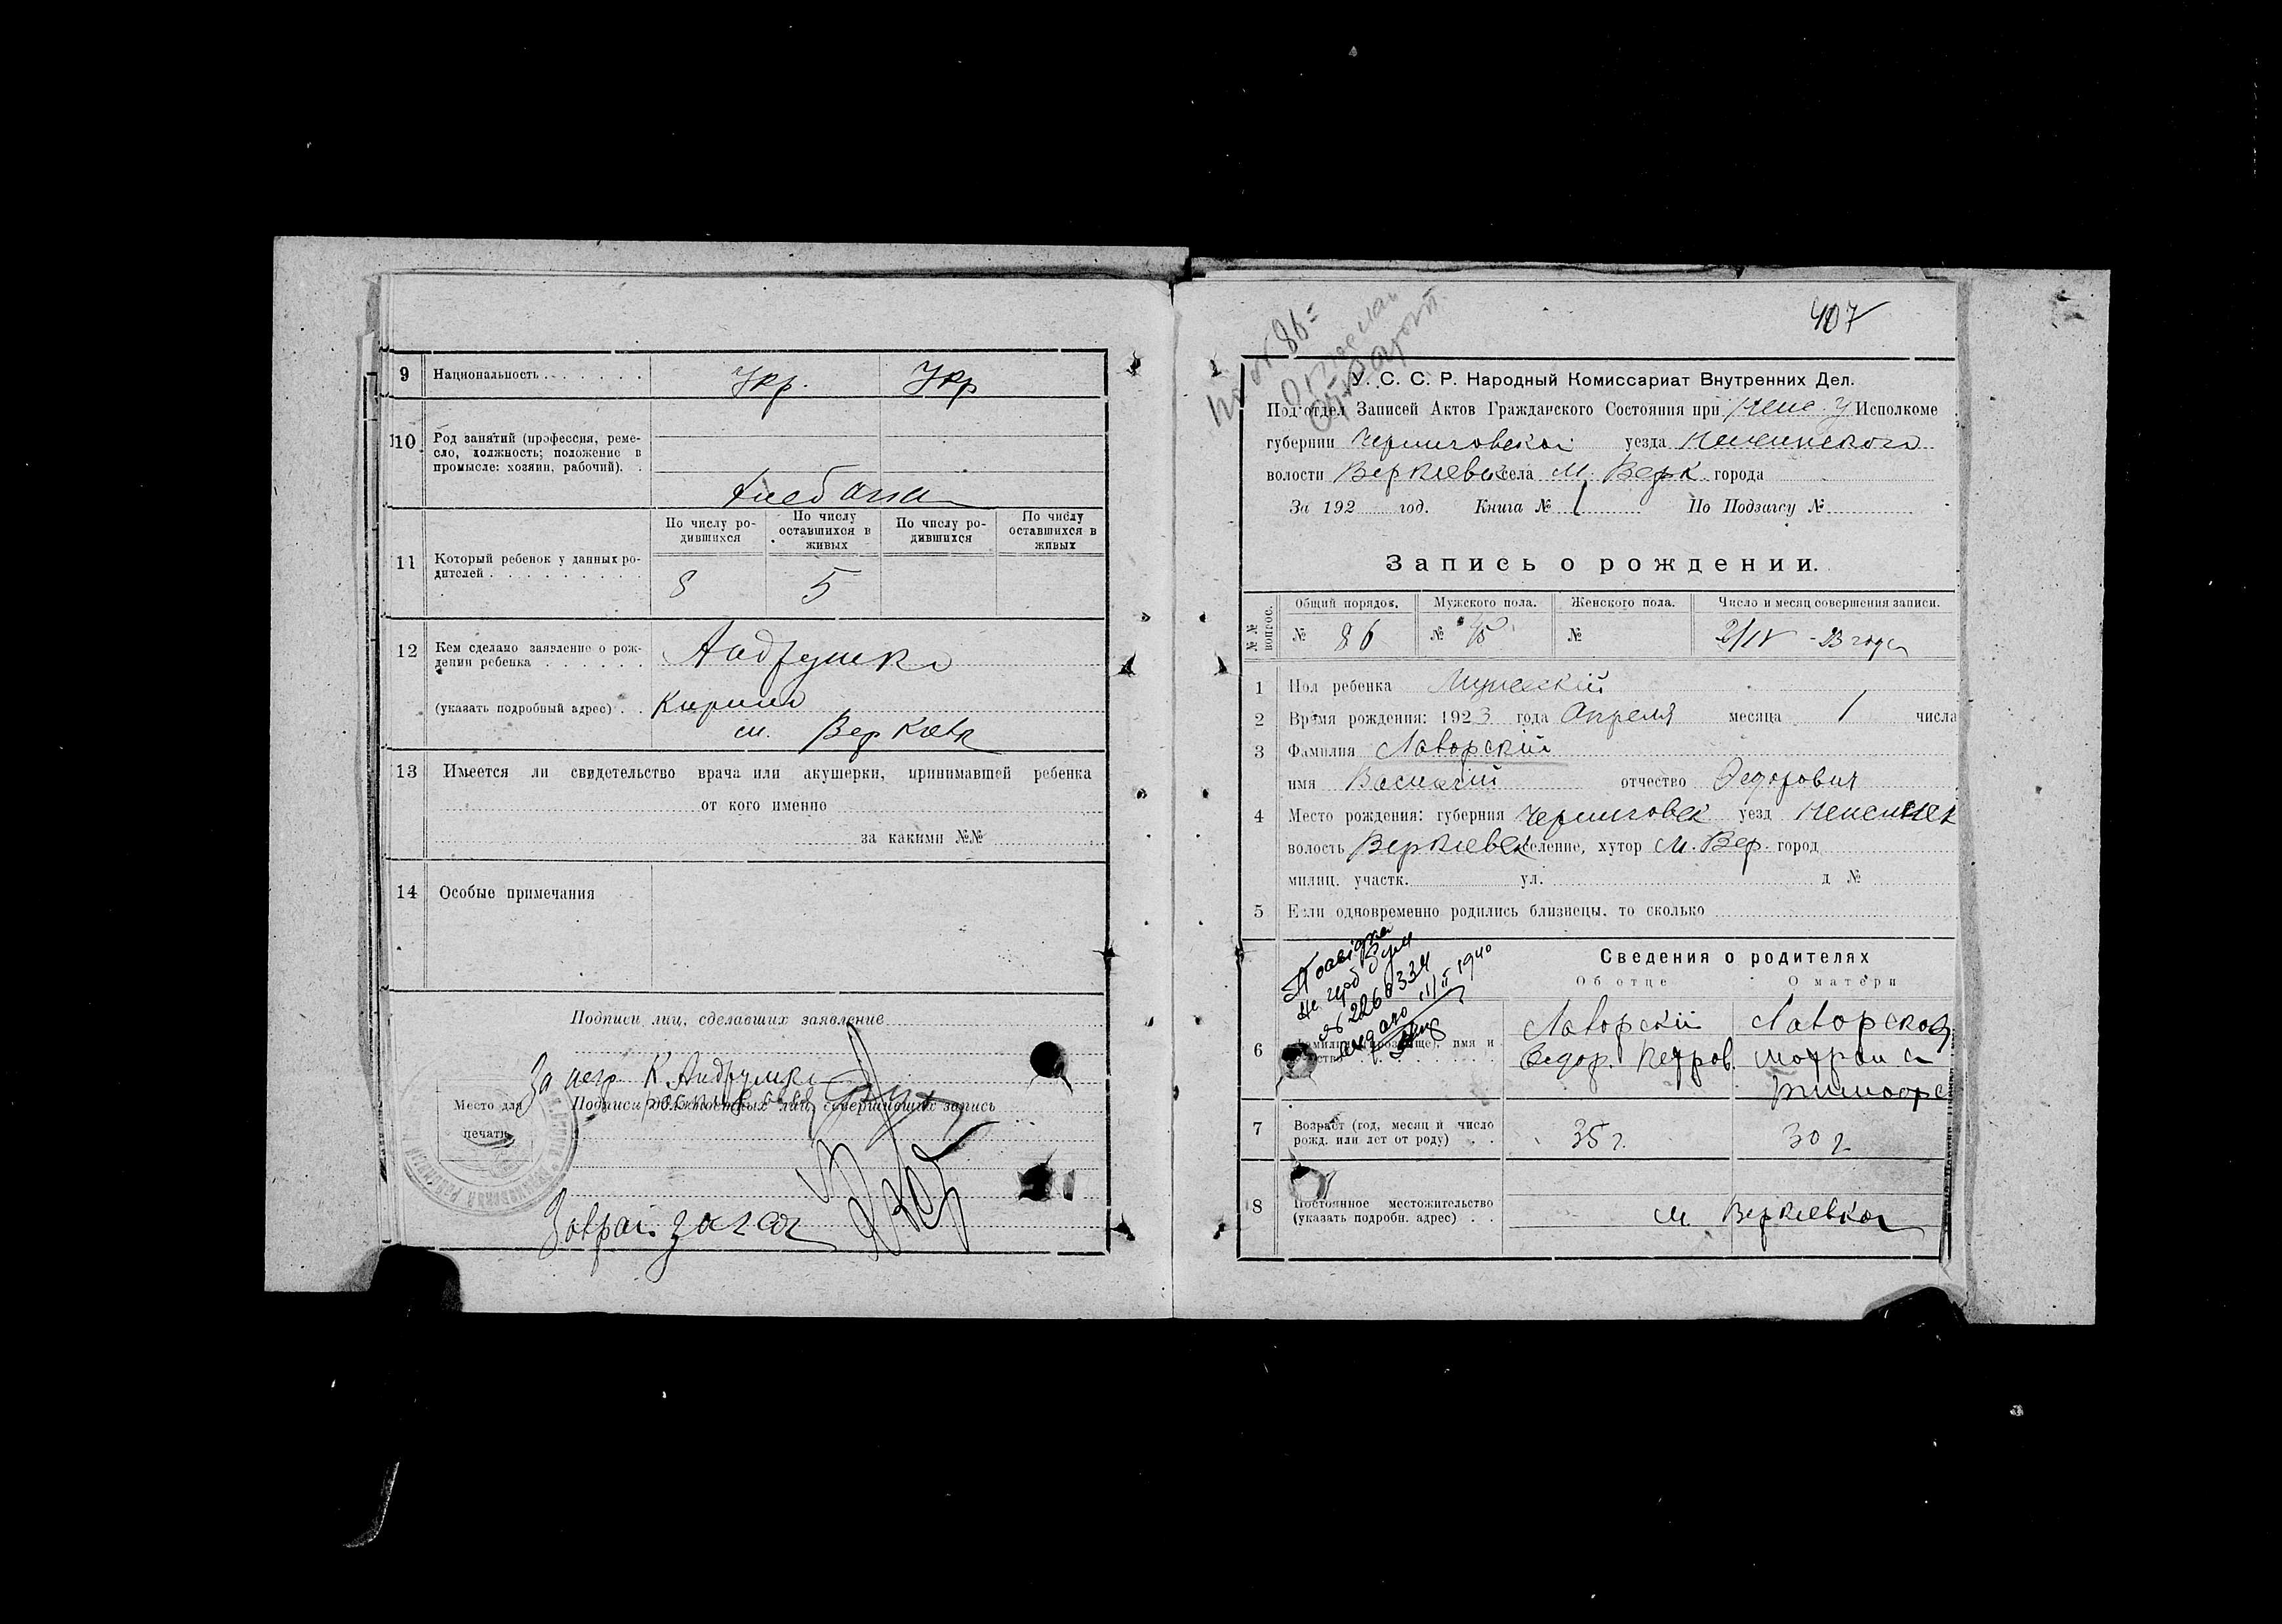 9 Национальность Укр. Укр
10 Род занятий (профессия, реме-
сло, должность; положение в
промысле: хозяин, рабочий).
По числу ро-
дившихся
По числу
оставшихся в
живых
По числу ро-
дившихся
По числу
оставшихся в
живых
11 Который ребенок у данных ро-
дителей
8 5
12 Кем сделано заявление о рож-
дении ребенка Андрушко
(указать подробный адрес) Кирилл
м. Веркиевк
13 Имеется ли свидетельство врача или акушерки, принимавшей ребенка
от кого именно
за какими №№
14 Особые примечания
Подписи лиц, сделавших заявление
За негр К. Андрушко
Подписи должностных лиц, совершивших запись
Место для
печати
407
У. С. С. Р. Народный Комиссариат Внутренних Дел.
Под‘отдел Записей Актов Гражданского Состояния при Неж. У Исполкоме
губернии Черниговской уезда Неженского
волости Веркиевск села М. Верк. города
За 192 год. Книга № 1 По Подзагсу №
Запись о рождении.
№№ вопрос.
Общий порядов. Мужского пола. Женского пола. Число и месяц совершения записи.
№ 86 № 45 № 2/IV - 23 года
1 Пол ребенка Мужеский
2 Время рождения: 1923 года Апреля месяца 1 числа
3 Фамилия Лаворский
имя Василий отчество Федорович
4 Место рождения: губерния Черниговск уезд Неженск
волость Веркиевск селение, хутор М. Вер. город
милиц. участк. ул. д №
5 Если одновременно родились близнецы, то сколько
Сведения о родителях
Об отце О матери
№ 2260334
1940
6 имя и
Лаворскій Лаворская
Федор. Петров. Мотрона
Тимофе
7 Возраст (год, месяц и число
рожд. или лет от роду)
35 г. 30 г.
8 Постоянное местожительство
(указать подробн. адрес)
м. Веркиевка